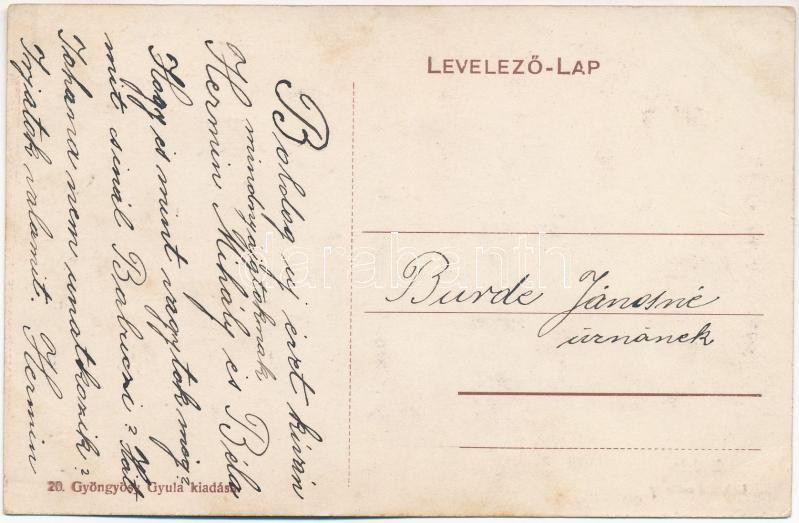 LEVELEZŐ-LAP
Boldog uj évet kíván
mindnyájatoknak
Hermin Mihály és Béla
Hogy és mint vagytok még?
mit csinál Babuczi?
Johana nem unatkozik?
Irjatok valamit. Hermin
Burde Jánosné
úrnának
20. Gyöngyösy Gyula kiadása
darabanth